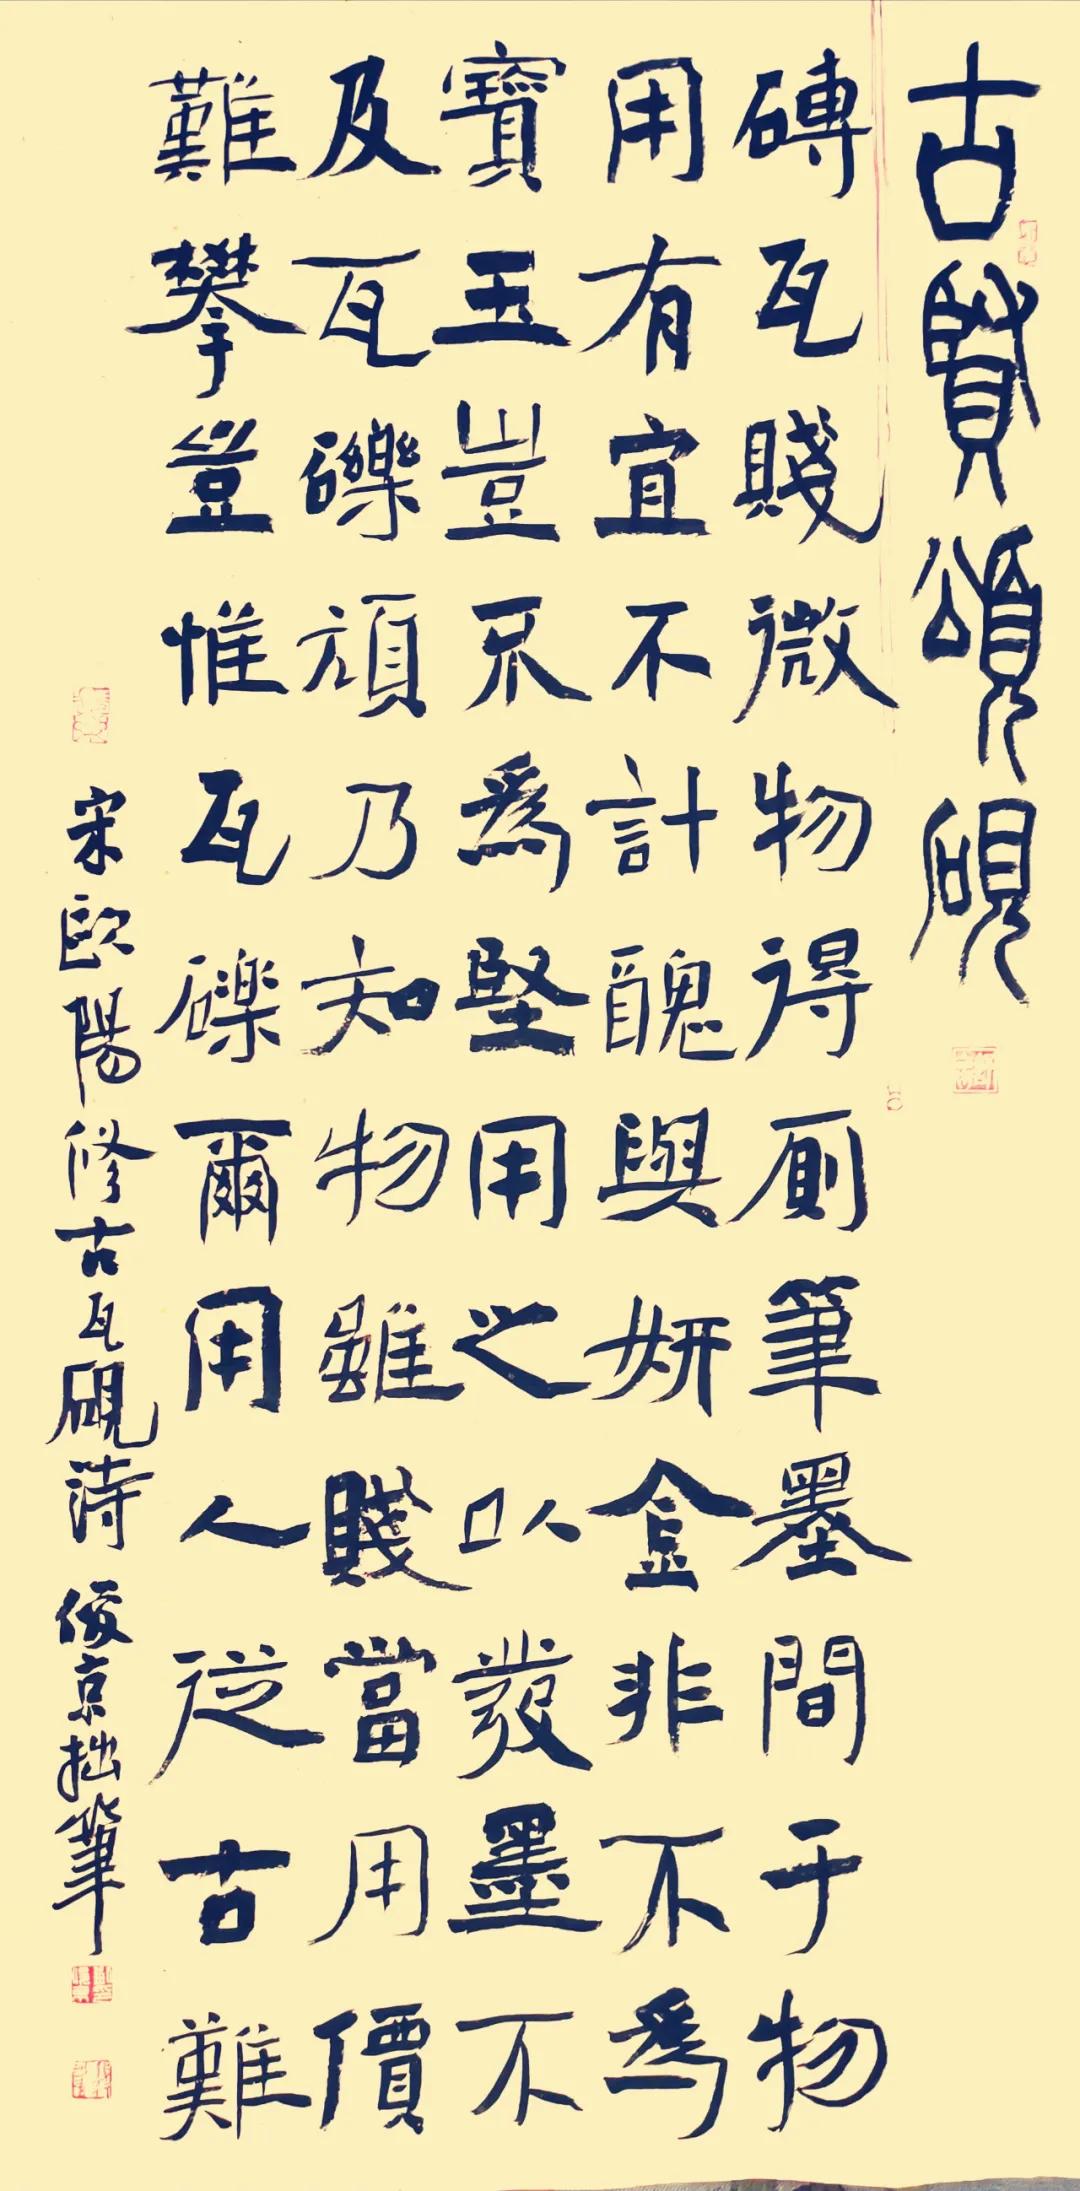 古賢頌硯
磚瓦賤微物得厠筆墨間于物
用有宜不計醜與妍金非不為
寶玉豈不為堅用之以發墨不
及瓦礫頑乃知物雖賤當用價
難攀豈惟瓦礫爾用人從古難
宋歐陽修古瓦硯詩 俊京拙筆